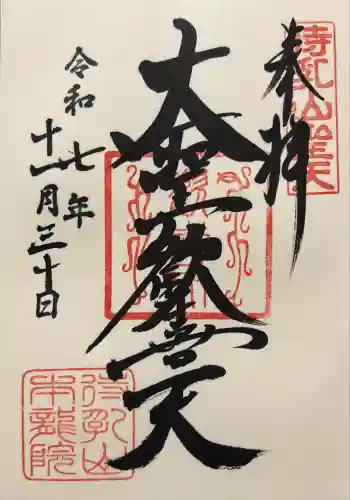 奉拝
大聖歓喜天
令和七年
十一月三十日
待乳山
本龍院